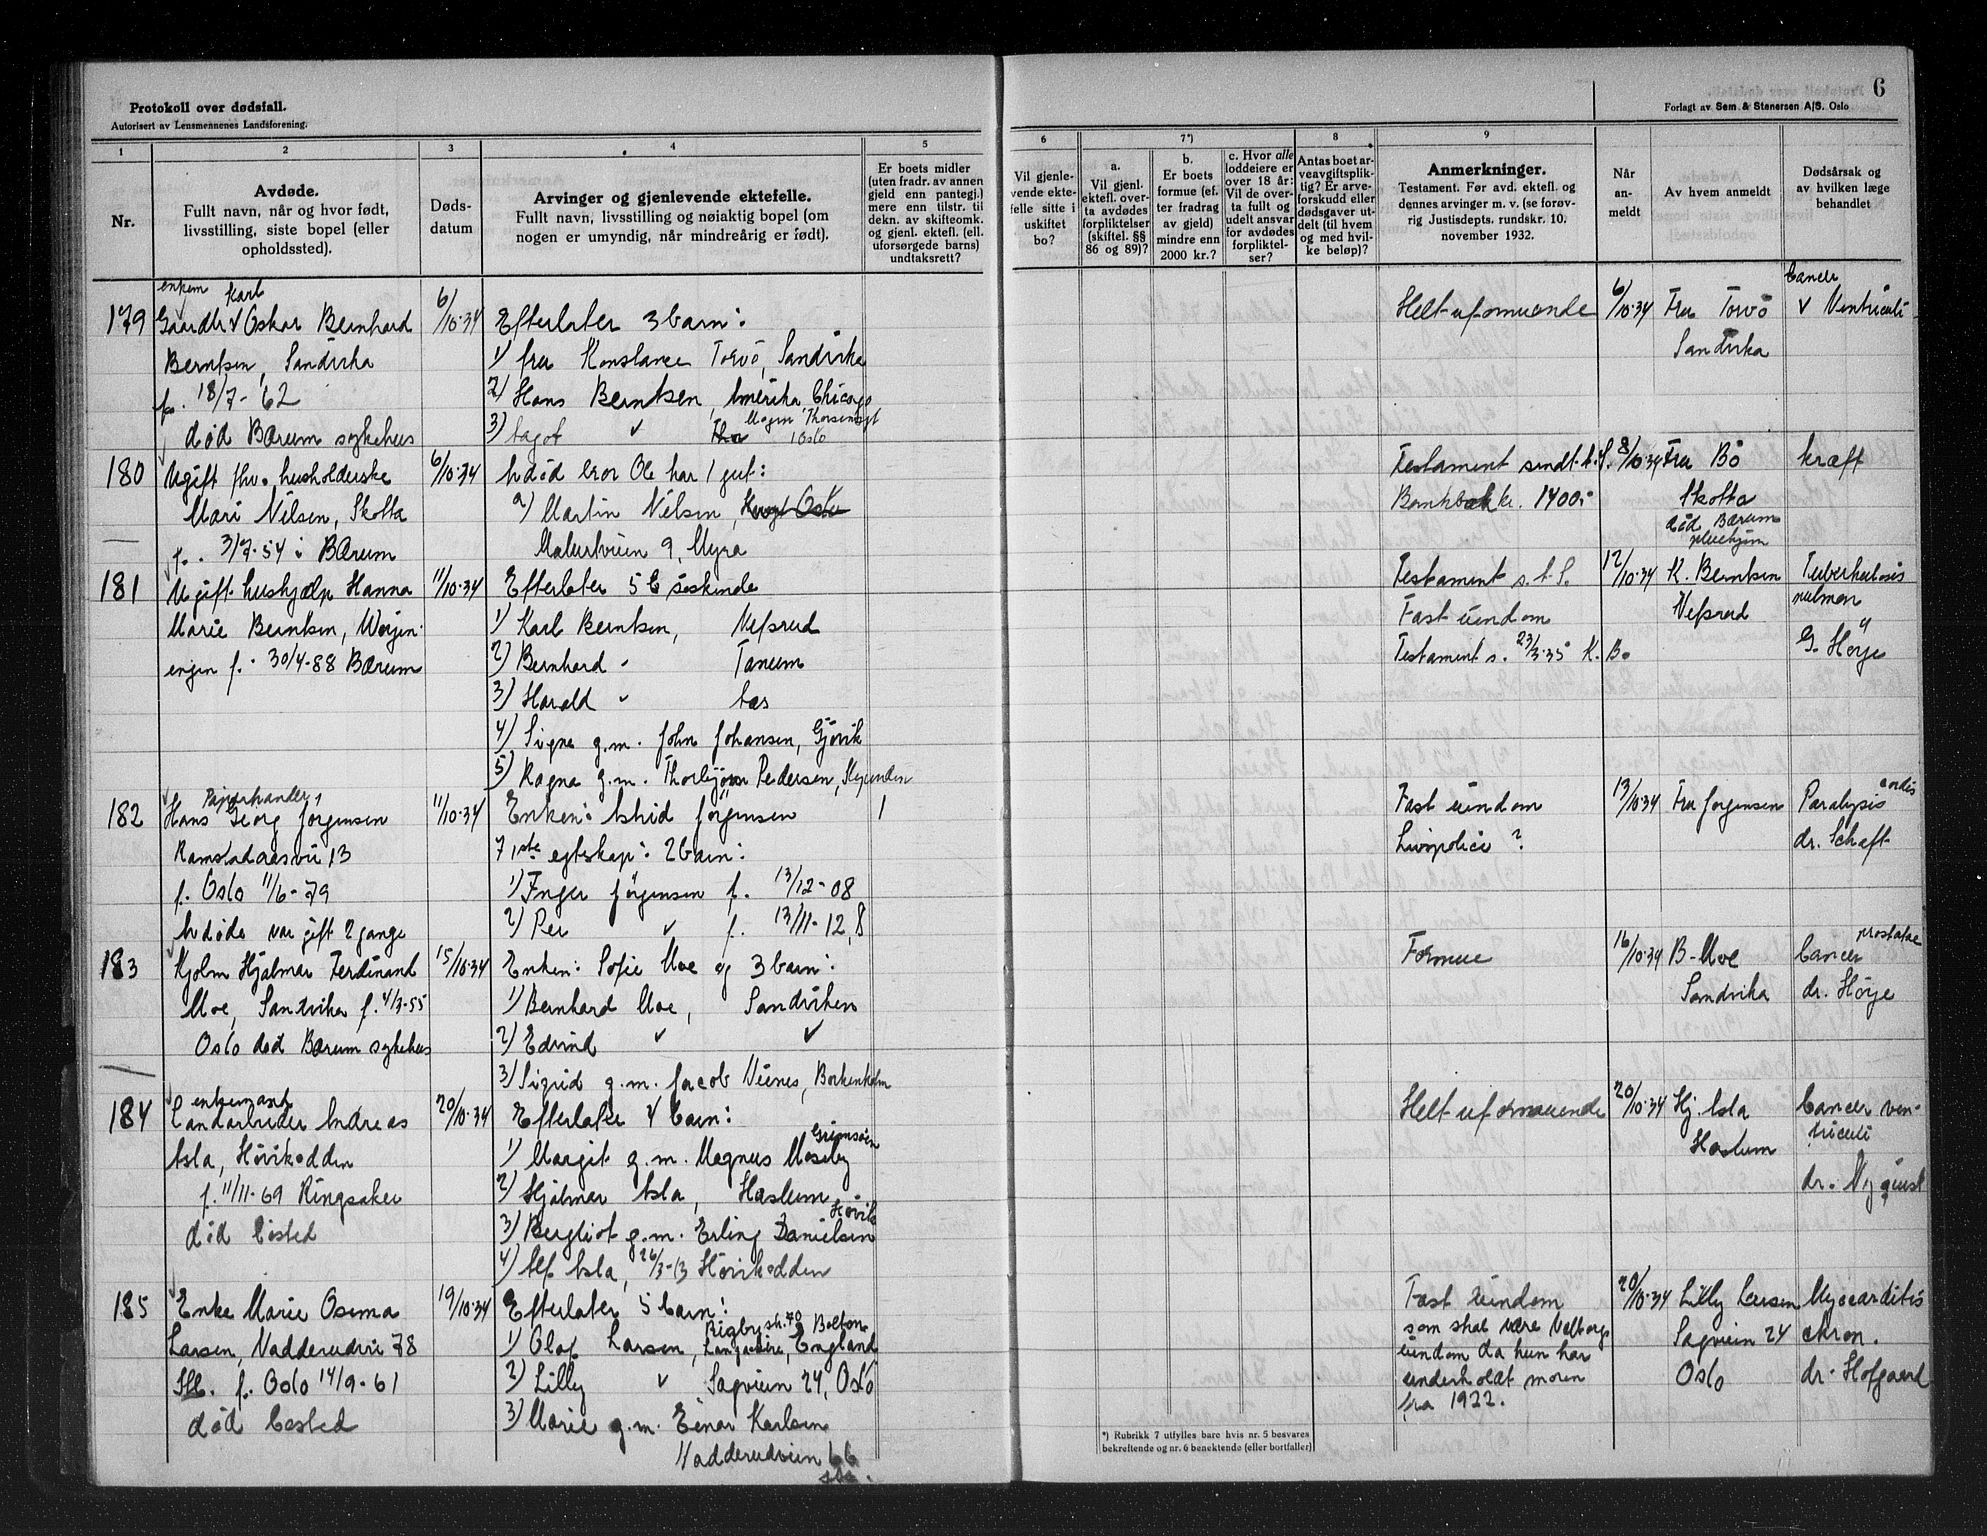 Protokoll over dødsfall.
Autorisert av Lensmennenes Landsforening.
6
Forlagt av Sem & Stenersen A/S. Oslo
1
2
3
4
5
6
7*)
8
9
Nr.
Avdøde.
Fullt navn, når og hvor født,
livsstilling, siste bopel (eller
opholdssted).
Døds-
datum
Arvinger og gjenlevende ektefelle.
Fullt navn, livsstilling og nøiaktig bopel (om
nogen er umyndig, når mindreårig er født).
Er boets midler
(uten fradr. av annen
gjeld enn pantegj.)
mere enn tilstr. til
dekn. av skifteomk.
og gjenl. ektefl. (ell.
uforsørgede barns)
undtaksrett?
Vil gjenle-
vende ekte-
felle sitte i
uskiftet
bo?
a.
Vil gjenl.
ektefl. over-
ta avdødes
forpliktelser
(skiftel. §§
86 og 89)?
b.
Er boets
formue (ef-
ter fradrag
av gjeld)
mindre enn
2000 kr.?
c. Hvor alle
loddeiere er
over 18 år:
Vil de over-
ta fullt og
udelt ansvar
for avdødes
forpliktel-
ser?
Antas boet ar-
veavgiftsplik-
tig? Er arve-
forskudd eller
dødsgaver ut-
delt (til hvem
og med hvil-
ke beløp)?
Anmerkninger.
Testament. Før avd. ektefl. og
dennes arvinger m. v. (se forøv-
rig Justisdepts. rundskr. 10.
november 1932.
Når
an-
meldt
Av hvem anmeldt
Dødsårsak og
av hvilken læge
behandlet
179
enkem Karl
Gaardbr Oskar Bernhard
Berntsen, Sandvika
fø. 18/7-62
død Bærum sykehus
6/10-34
Efterlater 3 barn:
1) fru Konstance Torvø, Sandvika
2) Hans Berntsen, Amerika Chicago
3) Aagot " Mogen Thorsensgt
Oslo
Helt uformuende
6/10-34
Fru Torvø
Sandvika
Cancer
v Ventriculi
180
Ugift fhv. husholderske
Mari Nilsen, Skotta
f. 3/7-54 i Bærum
6/10-34
Avdød bror Ole har 1 gut:
a) Martin Nilsen,
9, Myra
Testament sendt t. S.
Bankbok kr. 1400,-
8/10-34
Fru Bø
Skotta
død Bærum
pleiehjem
kræft
181
Ugift hushjælp Hanna
Marie Berntsen, Wøyen-
engen f. 30/4-88 Bærum
11/10-34
Efterlater 5 søskende
1) Karl Berntsen, Vefsrud
2) Bernhard " Tanum
3) Harald " Aas
4) Signe g.m. John Johansen, Gjøvik
5) Ragna g.m. Thorbjørn Pedersen,
Testament s. t. S.
Fast eiendom
Testament s. 23/3-35 K. B.
12/10-34
K. Berntsen
Vefsrud
Tuberkulosis
pulmon
G. Høye
182
Papirhandler
Hans Georg Jørgensen
Ramstadaasvei 13
f. Oslo 11/6-79
Avdøde var gift 2 gange
11/10-34
Enken: Astrid Jørgensen
I 1ste egteskap: 2 barn:
1) Inger Jørgensen f. 13/12-08
2) Per " f. 13/11-12,8
1
Fast eiendom
Livspolice ?
13/10-34
Fru Jørgensen
Paralysis cordis
dr. Schaft
183
Kjølm Hjalmar Ferdinand
Moe, Sandvika f. 4/3-55
Oslo død Bærum sykehus
15/10-34
Enken: Sofie Moe og 3 barn:
1) Bernhard Moe, Sandviken
2) Edvind " "
3) Sigrid g.m. Jacob Vienes, Borkenholm
Formue
16/10-34
B. Moe
Sandvika
Cancer prostatae
dr. Høye
184
enkemand
Landarbeider Andreas
Asla, Høvikodden
f. 11/11-69 Ringsaker
død bosted
20/10-34
Efterlater 4 barn:
1) Margit g.m. Magnus Moseby
2) Hjalmar Asla, Haslum
3) Bergliot g.m. Erling Danielsen
Høvik
4) Alf Asla, 26/3-13 Høvikodden
Helt uformuende
20/10-34
Hj. Asla
Haslum
Cancer ven-
triculi
dr. Nyquist
185
Enke Marie Osema
Larsen, Nadderudvei 78
Stb. f. Oslo 14/9-61
død bosted
19/10-34
Efterlater 5 barn:
1) Olaf Larsen, Rigby str. 70 Bolton
Langashire, England
2) Lilly " Sagveien 24, Oslo
3) Marie g.m. Einar Karlsen
Nadderudveien 66
Stb.
Fast eiendom
som skal være Valborgs
eiendom da hun har
underholdt moren
fra 1922.
20/10-34
Lilly Larsen
Sagveien 24
Oslo
Myocarditis
chron.
dr. Hofgaard
*) Rubrikk 7 utfylles bare hvis nr. 5 besvares
bekreftende og nr. 6 benektende (eller bortfaller)